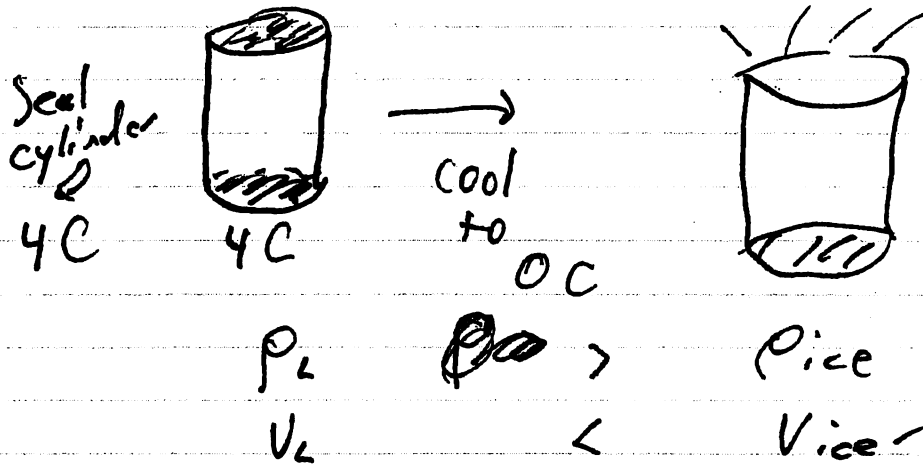 Seal
cylinder
4 C
4 C
cool
to
0 C
ρL > ρice
VL < Vice